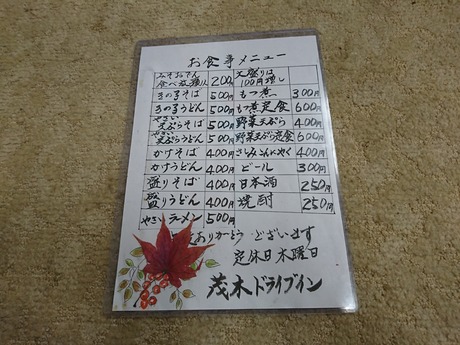 お食事メニュー
みそおでん
食べ放題1人 200円
きの子そば 500円
きの子うどん 500円
やさい
天ぷらそば 500円
やさい
天ぷらうどん 500円
かけそば 400円
かけうどん 400円
盛りそば 400円
盛りうどん 400円
やさいラーメン 500円
大盛りは
100円増し
もつ煮 300円
もつ煮定食 600円
野菜天ぷら 400円
野菜天ぷら定食 600円
さしみこんにゃく 400円
ビール 300円
日本酒 250円
焼酎 250円
ありがとうございます
定休日木曜日
茂木ドライブイン